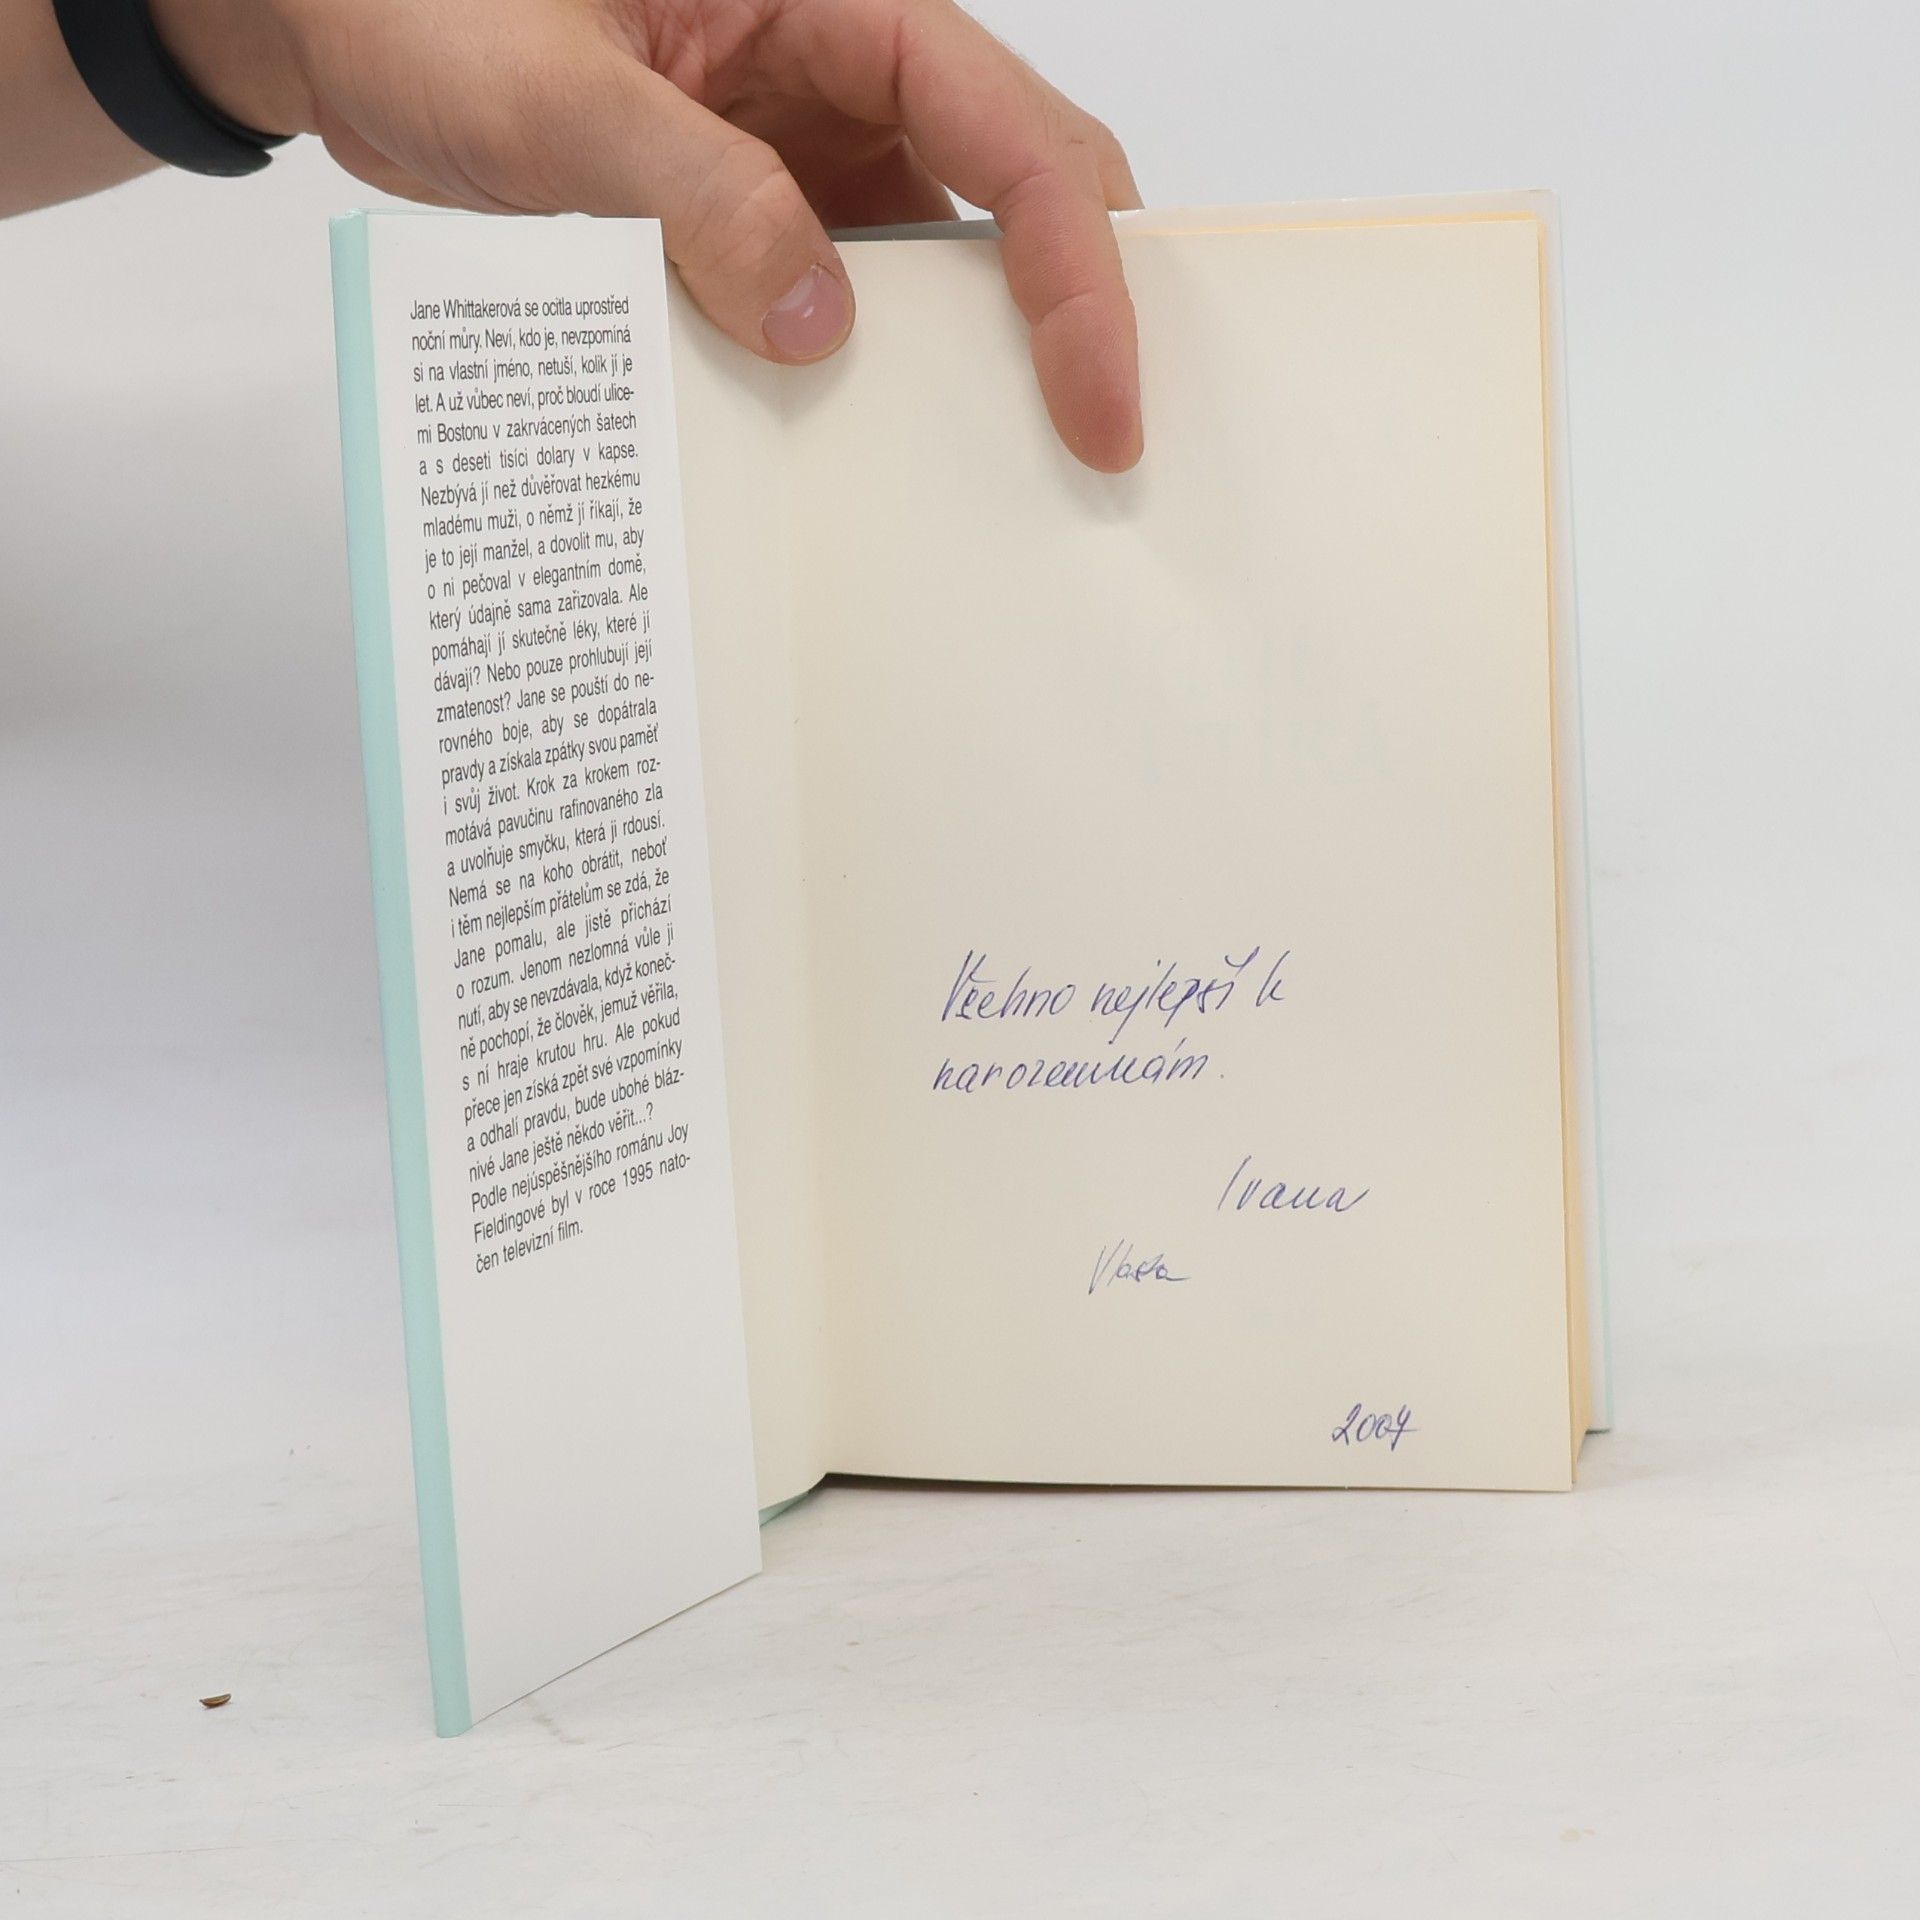 Jane Whittakerová se ocitla uprostřed
noční můry. Neví, kdo je, nevzpomíná
si na vlastní jméno, netuší, kolik jí je
let. A už vůbec neví, proč bloudí ulice-
mi Bostonu v zakrvácených šatech
a s deseti tisíci dolary v kapse.
Nezbývá jí než důvěřovat hezkému
mladému muži, o němž jí říkají, že
je to její manžel, a dovolit mu, aby
o ni pečoval v elegantním domě,
který údajně sama zařizovala. Ale
pomáhají jí skutečně léky, které jí
dávají? Nebo pouze prohlubují její
zmatenost? Jane se pouští do ne-
rovného boje, aby se dopátrala
pravdy a získala zpátky svou paměť
i svůj život. Krok za krokem roz-
motává pavučinu rafinovaného zla
a uvolňuje smyčku, která ji rdousí.
Nemá se na koho obrátit, neboť
i těm nejlepším přátelům se zdá, že
Jane pomalu, ale jistě přichází
o rozum. Jenom nezlomná vůle ji
nutí, aby se nevzdávala, když koneč-
ně pochopí, že člověk, jemuž věřila,
s ní hraje krutou hru. Ale pokud
přece jen získá zpět své vzpomínky
a odhalí pravdu, bude ubohé bláz-
nivé Jane ještě někdo věřit...?
Podle nejúspěšnějšího románu Joy
Fieldingové byl v roce 1995 nato-
čen televizní film.
Všechno nejlepší k
narozeninám.
Ivana
Vlasta
2007